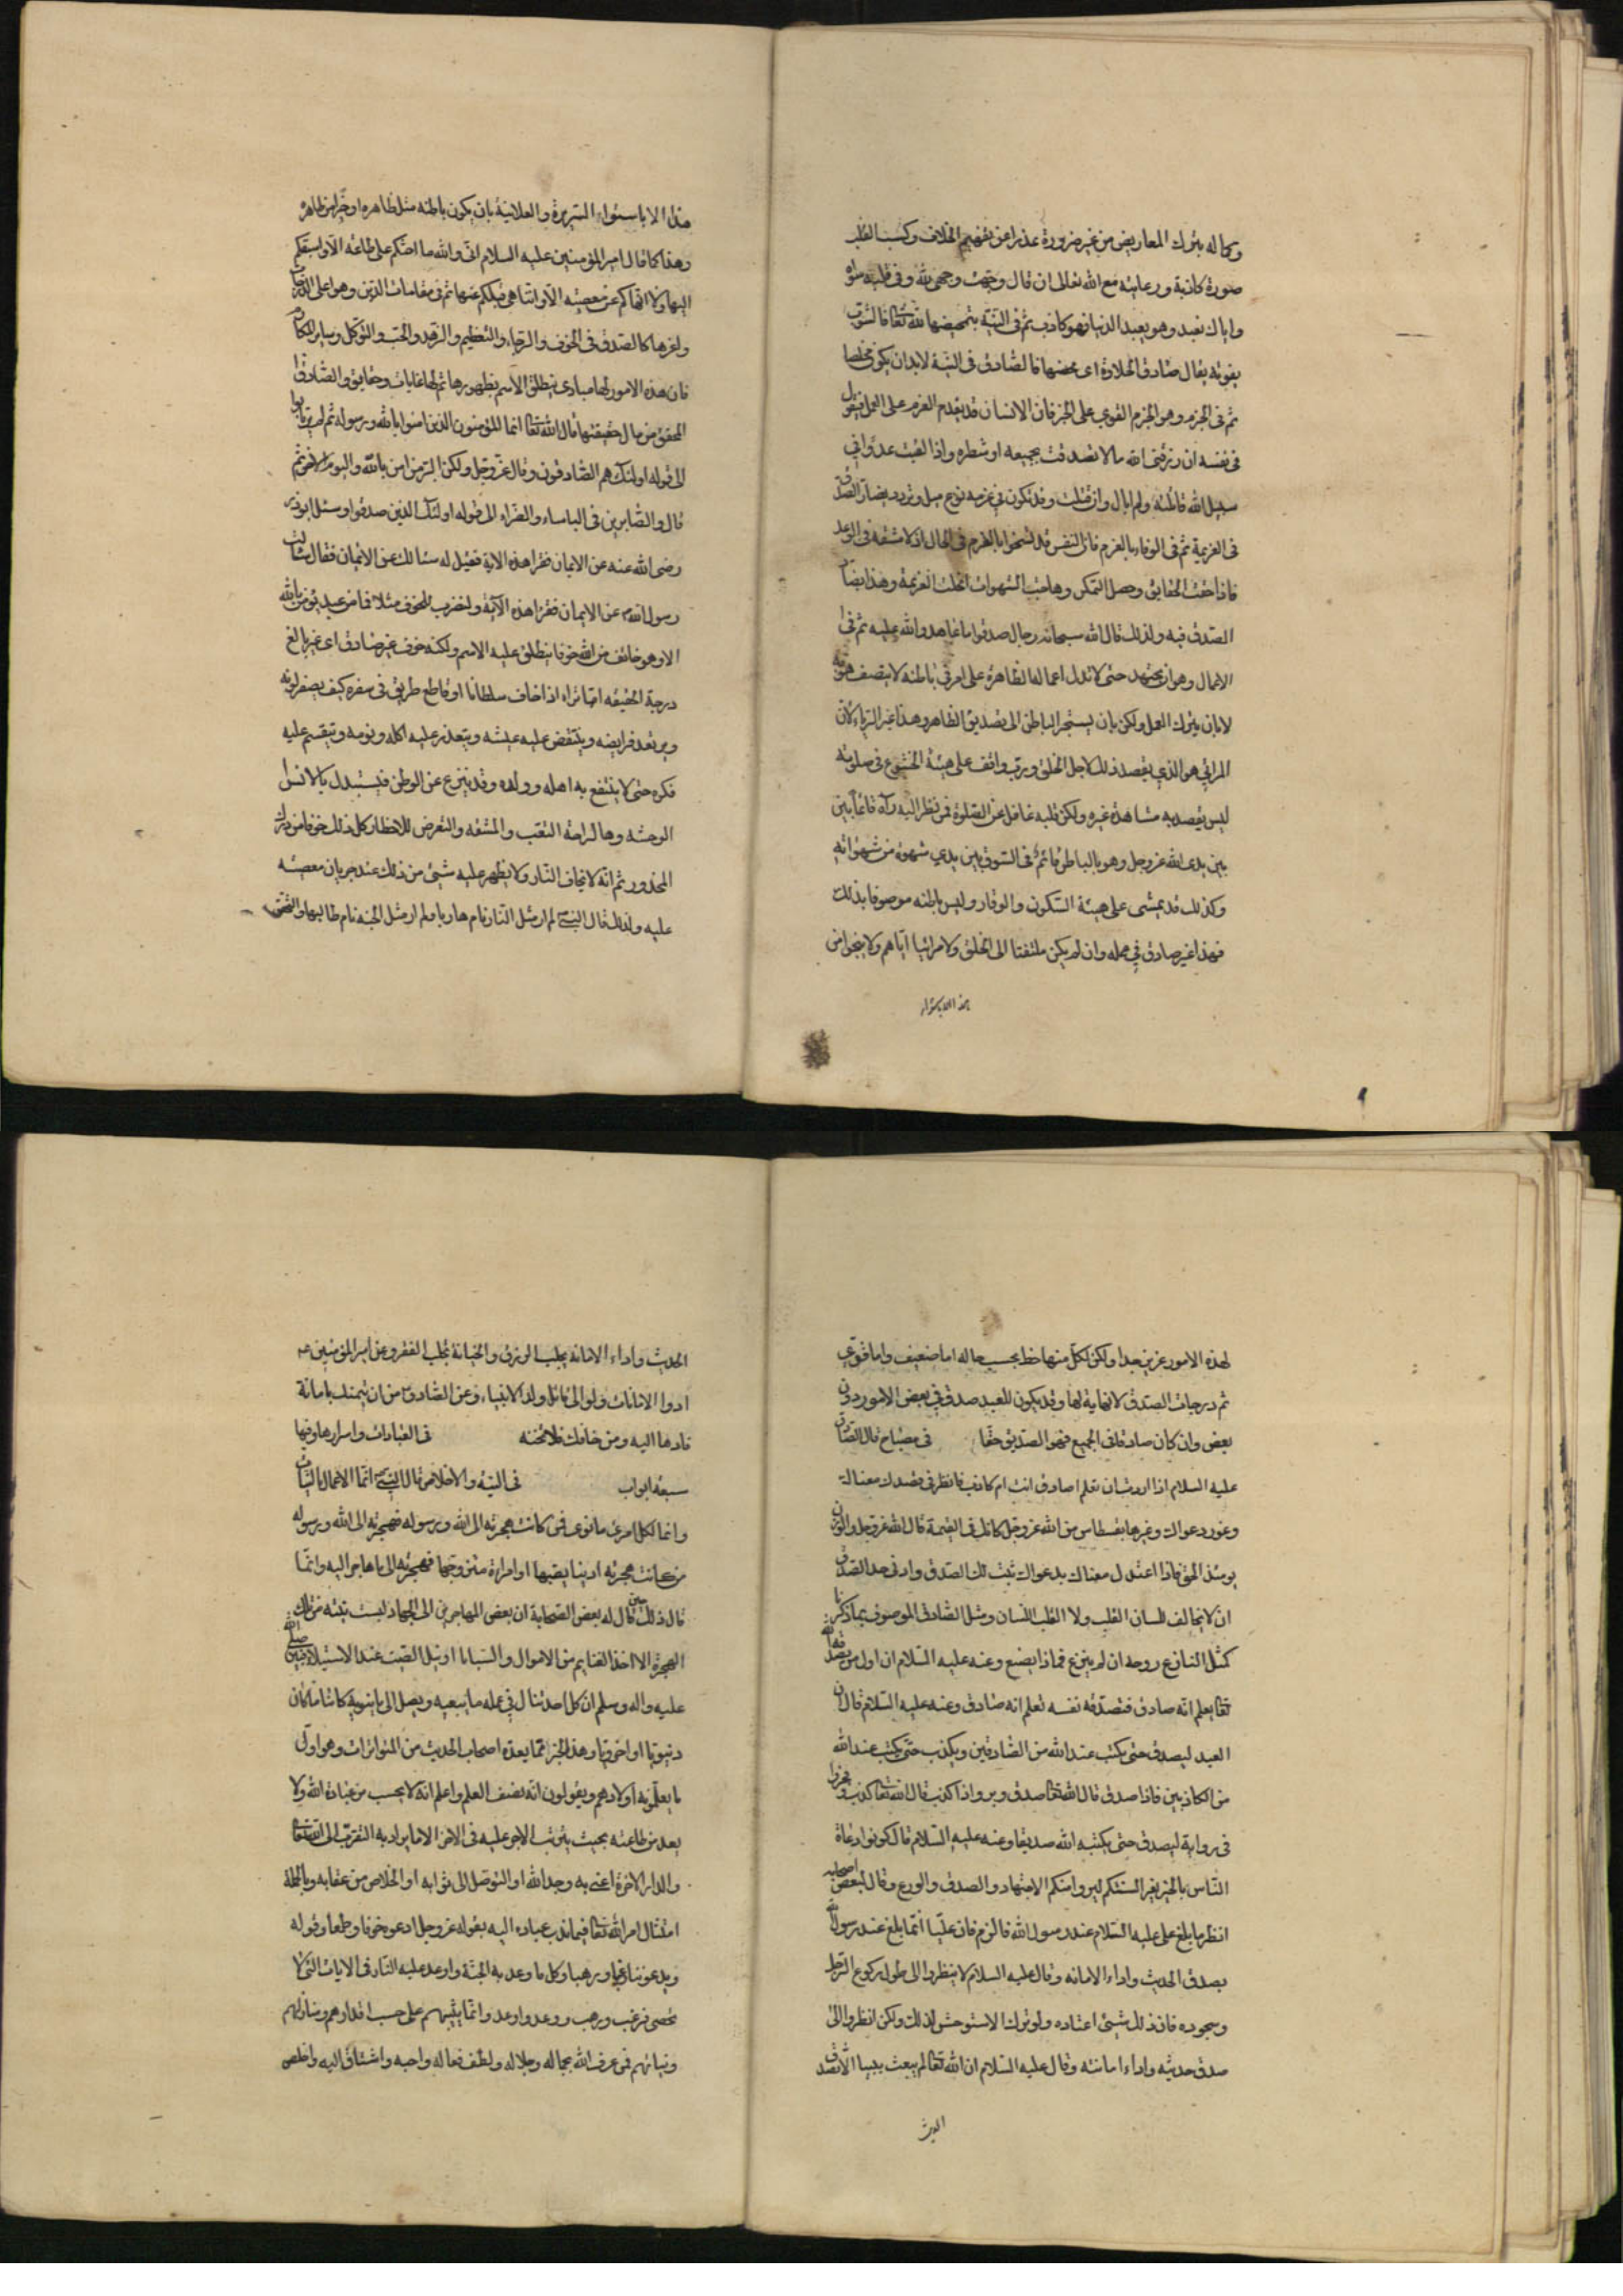 وكماله بترك المعاريض من غير ضرورة عذرا عن تفهيم الخلاف وكسب القلب
صورة كاذبة ورعايته مع الله تعالى ان قال وجهت وجهي لله وفي قلبه سواه
واياك نعبد وهو يعبد الدنيا فهو كاذب ثم في النية بتمحيضها لله تعالى فالشوب
يفوته يقال صادق الحلاوة اى محضها فالصادق في النية لابد ان يكون مخلصا
ثم في الجزم وهو الجزم القوي على الخير فان الانسان قد يقدم العزم على العمل فيقول
في نفسه ان رزقني الله مالا تصدقت بجميعه او شطره واذا لقيت عدوا في
سبيل الله قاتلته ولم ابال وان قتلت وقد تكون في عزمه نوع ميل وتردد يضاد الصدق
في العزيمة ثم في الوفاء بالعزم فان النفس قد تسخوا بالعزم في الحال اذ لا مشقة في الوعد
فاذا حقت الحقايق وحصل التمكن وهاجت الشهوات انحلت العزيمة وهذا يضاد
الصدق فيه ولذلك قال الله سبحانه رجال صدقوا ما عاهدوا الله عليه ثم في
الاعمال وهو ان يجتهد حتى لا تدل اعماله الظاهرة على امر في باطنه لا يتصف هو به
لا بان يترك العمل ولكن بان يستجر الباطن الى تصديق الظاهر وهذا غير الرياء لان
المرائي هو الذي يقصد ذلك لاجل الخلق ورب واقف على هيئة الخشوع في صلوته
ليس يقصد به مشاهدة غيره ولكن قلبه غافل عن الصلوة فمن نظر اليه رآه قائما بين
بين يدى الله عز وجل وهو بالباطن قائم في السوق بين يدي شهوة من شهواته
وكذلك قد يمشى على هيئة السكون والوقار وليس باطنه موصوفا بذلك
فهذا غير صادق في عمله وان لم يكن ملتفتا الى الخلق ولا مرائيا اياهم ولا ينجوا من
هذا الا باستواء
هذا الا باستواء السريرة والعلانية بان يكون باطنه مثل ظاهره او خيرا من ظاهره
وهذا كما قال امير المؤمنين عليه السلام انى والله ما احثكم على طاعة الا واسبقكم
اليها ولا انهاكم عن معصية الا واتناهى قبلكم عنها ثم في مقامات الدين وهو اعلى الدرجات
واعزها كالصدق في الخوف والرجاء والتعظيم والزهد والحب والتوكل وساير المكارم
فان هذه الامور لها مبادى ينطلق الاسم بظهورها ثم لها غايات وحقايق والصادق
المحقق من نال حقيقتها قال الله تعالى انما المؤمنون الذين امنوا بالله ورسوله ثم لم يرتابوا
الى قوله اولئك هم الصادقون وقال عز وجل ولكن البر من امن بالله واليوم الاخر ثم
قال والصابرين في الباساء والضراء الى قوله اولئك الذين صدقوا وسئل ابو ذر
رضى الله عنه عن الايمان فقرا هذه الاية فقيل له سئالك عن الايمان فقال سئالت
رسول الله عن الايمان فقرا هذه الآية ولنضرب للخوف مثلا فما من عبد يؤمن بالله
الا وهو خائف من الله خوفا ينطلق عليه الاسم ولكنه خوف غير صادق اى غير بالغ
درجة الحقيقه اما تراه اذا خاف سلطانا او قاطع طريق في سفره كيف يصفر لونه
ويرتعد فرايضه ويتنغص عليه عيشه ويتعذر عليه اكله ونومه وتنقسم عليه
فكره حتى لا ينتفع به اهله وولده وقد ينزعج عن الوطن فيستبدل بالانس
الوحشه وبالراحة التعب والمشقه والتعرض للاخطار كل ذلك خوفا من درك
المحذور ثم انه لا يخاف النار ولا يظهر عليه شئ من ذلك عند جريان معصيته
عليه ولذلك قال النبي لم ار مثل النار نام هاربها ولم ار مثل الجنة نام طالبها والتحقيق
لهذه الامور عزيز جدا ولكن لكل منها حظ بحسب حاله اما ضعيف واما قوي
ثم درجات الصدق لا نهاية لها وقد يكون للعبد صدق في بعض الامور دون
بعض وان كان صادقا في الجميع فهو الصديق حقا في مصباح قال الصادق
عليه السلام اذا اردت ان تعلم اصادق انت ام كاذب فانظر في قصدك معناك
وغور دعواك وغيرها بقسطاس من الله عز وجل كانك في القيمة قال الله عز وجل والوزن
يومئذ الحق فاذا اعتدل معناك بدعواك ثبت لك الصدق وادنى حد الصدق
ان لا يخالف اللسان القلب ولا القلب اللسان ومثل الصادق الموصوف بما ذكرنا
كمثل النازع روحه ان لم ينزع فماذا يصنع وعنه عليه السلام ان اول من يصدقه الله
تعالى يعلم انه صادق فتصدقه نفسه تعلم انه صادق وعنه عليه السلام قال ان
العبد ليصدق حتى يكتب عند الله من الصادقين ويكذب حتى يكتب عند الله
من الكاذبين فاذا صدق قال الله تعالى صدق وبر واذا كذب قال الله تعالى كذب وفجر
في رواية ليصدق حتى يكتبه الله صديقا وعنه عليه السلام قال كونوا دعاة
الناس بالخير بغير السنتكم ليروا منكم الاجتهاد والصدق والورع وقال لبعض اصحابه
انظر ما بلغ على عليه السلام عند رسول الله فالزم فان عليا انما بلغ عند رسول الله
بصدق الحديث واداء الامانه وقال عليه السلام لا ينظروا الى طول ركوع الرجل
وسجوده فان ذلك شئ اعتاده ولو ترك لاستوحش لذلك ولكن انظروا الى
صدق حديثه واداء امانته وقال عليه السلام ان الله تعالى لم يبعث نبيا الا بصدق
الحديث
الحديث واداء الامانه يجلب الرزق والخيانة تجلب الفقر وعن امير المؤمنين عه
ادوا الامانات ولو الى قاتل ولد الانبياء وعن الصادق من ائتمنك بامانة
فادها اليه ومن خانك فلا تخنه في العبادات واسرارها وفيها
سبعة ابواب في النية والاخلاص قال النبي انما الاعمال بالنيات
وانما لكل امرئ ما نوى فمن كانت هجرته الى الله ورسوله فهجرته الى الله ورسوله
من كانت هجرته الى دنيا يصيبها او امراة يتزوجها فهجرته الى ما هاجر اليه وانما
قال ذلك حين قال له بعض الصحابة ان بعض المهاجرين الى الجهاد ليست نيته من تلك
الهجرة الا اخذ الغنايم من الاموال والسبايا او نيل الصيت عند الاستيلاء فبين صلى الله
عليه واله وسلم ان كل احد ينال في عمله ما يبغيه ويصل الى ما ينويه كائنا ما كان
دنيويا او اخرويا وهذا الخبر مما يعده اصحاب الحديث من المتواترات وهو اول
ما يعلمونه اولادهم ويقولون انه نصف العلم واعلم انه لا يحسب من عبادة الله ولا
يعد من طاعته بحيث يترتب الاجر عليه في الاخرة الا ما يراد به التقرب الى الله تعالى
والدار الاخرة اعني به وجه الله او التوصل الى ثوابه او الخلاص من عقابه وبالجملة
امتثال امر الله تعالى فيما ندب عباده اليه بقوله عز وجل ادعوه خوفا وطمعا وقوله
ويدعوننا رغبا ورهبا وكل ما وعد به الجنة واوعد عليه النار في الايات التى لا
تحصى فرغب ورهب ووعد واوعد وانما يثيبهم على حسب اقدارهم ومنازلهم
ونياتهم فمن عرف الله بجماله وجلاله ولطف فعاله واحبه واشتاق اليه واخلص